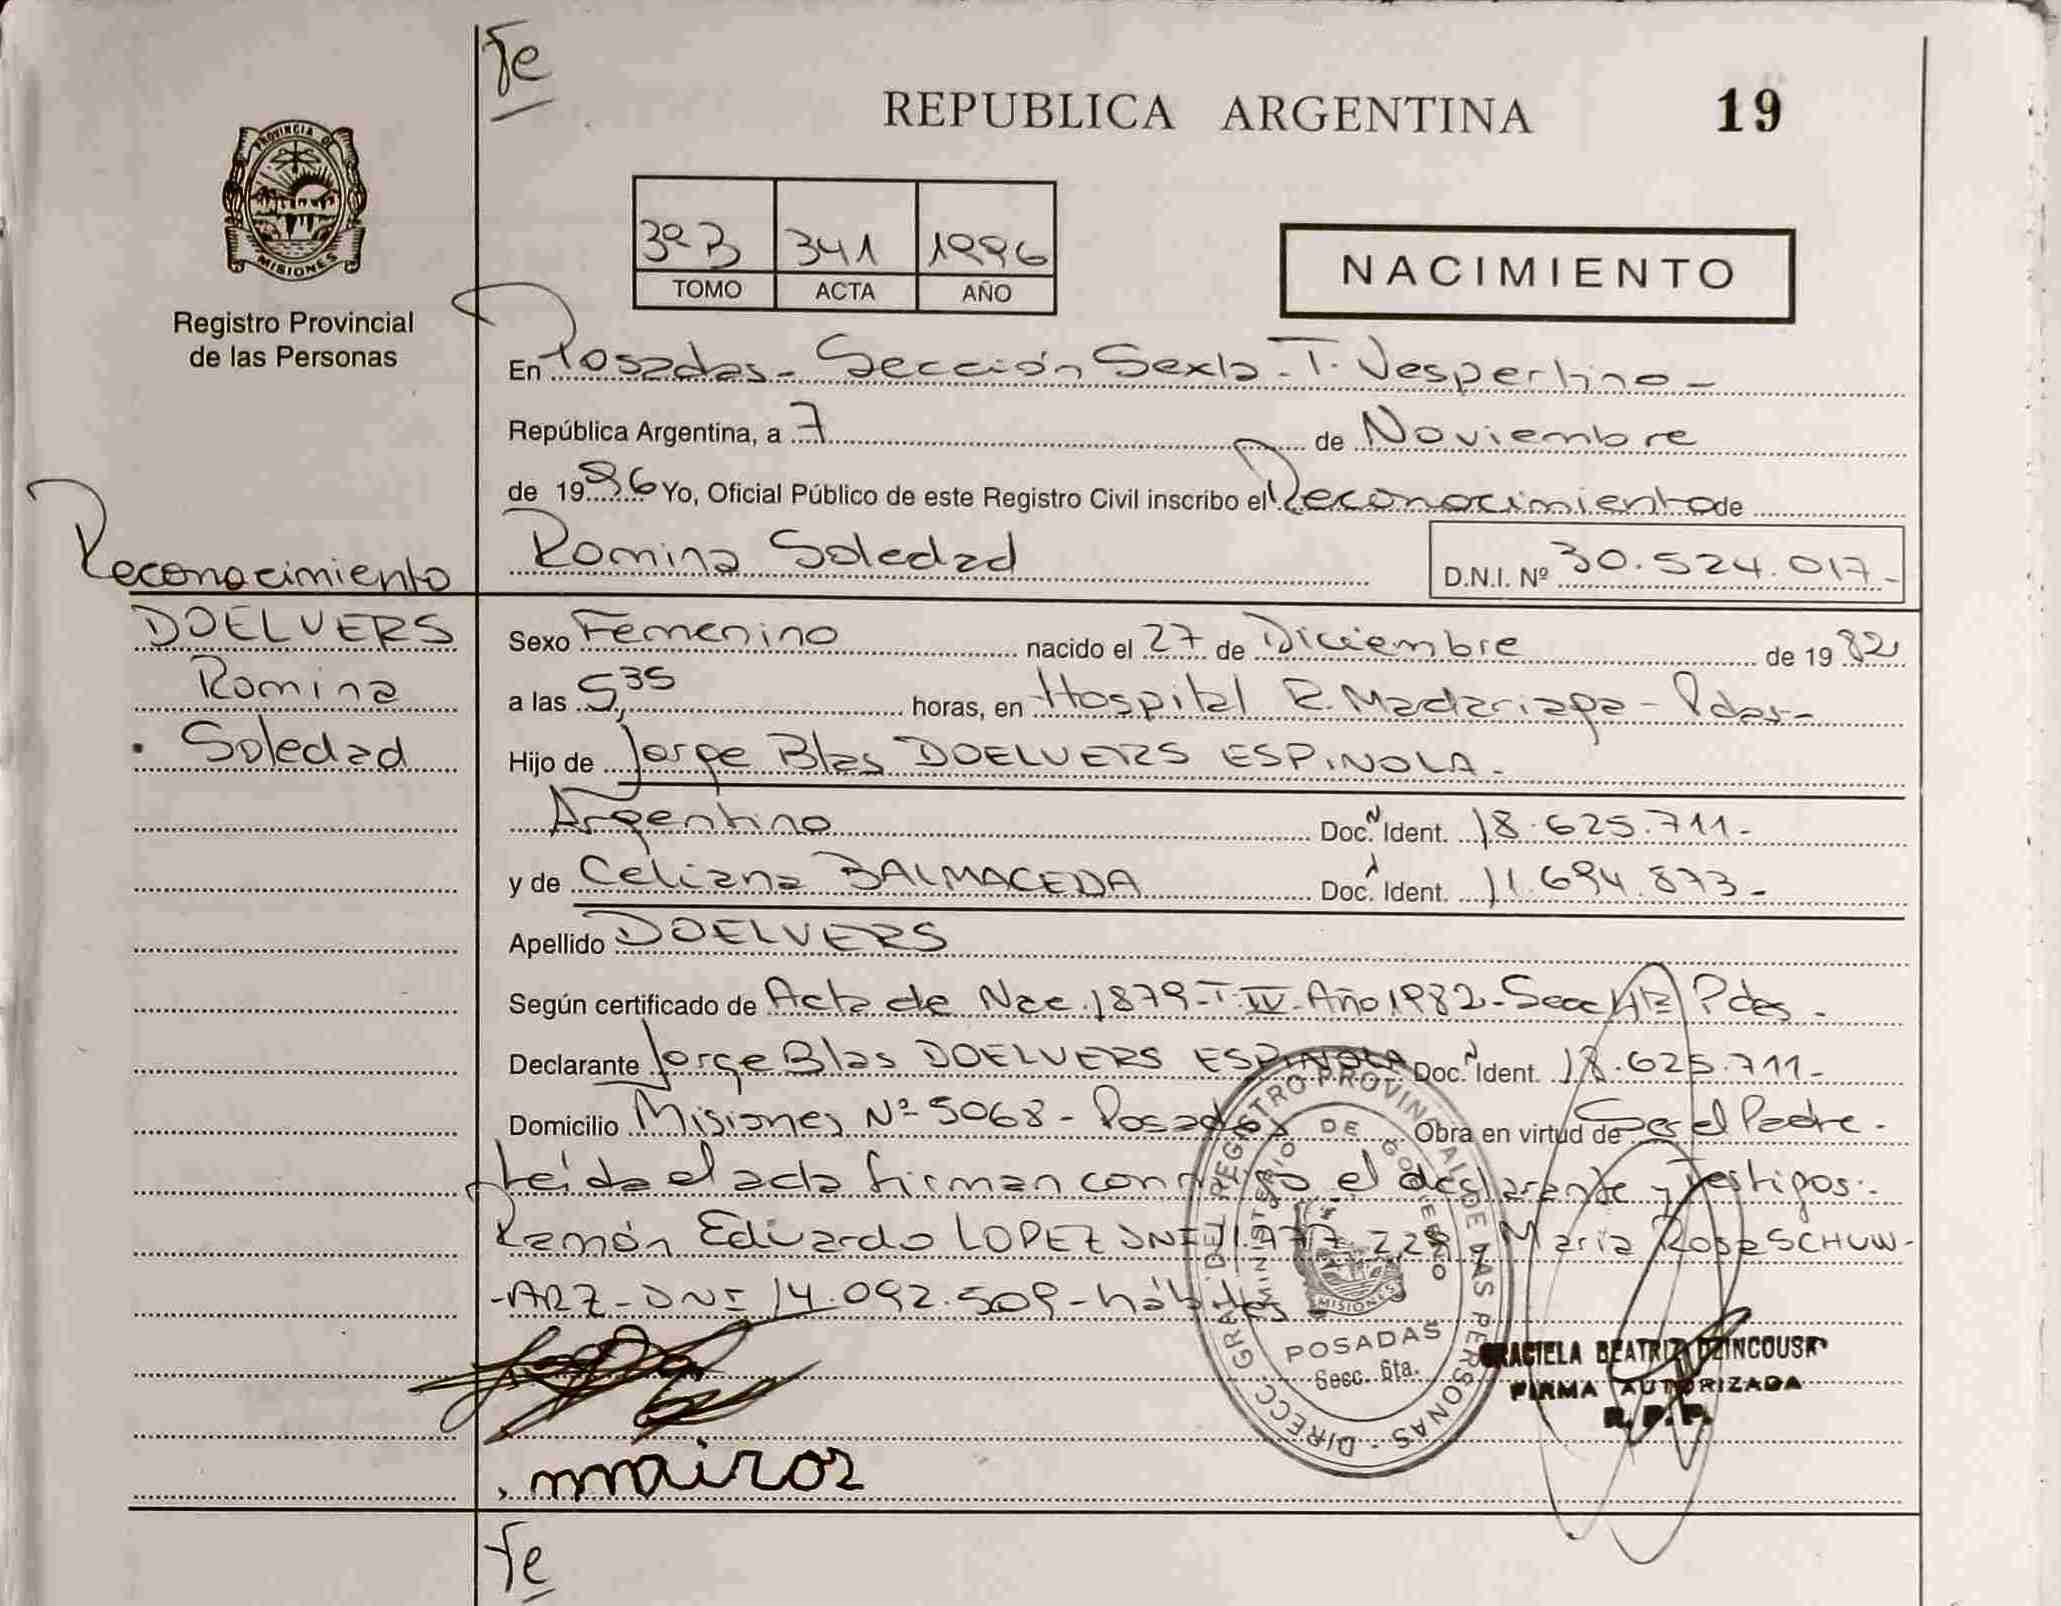 Te
REPUBLICA ARGENTINA
19
PROVINCIA DE
MISIONES
Registro Provincial
de las Personas
3º B 341 1996
TOMO ACTA AÑO
NACIMIENTO
En Posadas - Sección Sexta - T. Vespertino -
República Argentina, a 7 de Noviembre
de 1996 Yo, Oficial Público de este Registro Civil inscribo el Reconocimiento de
Romina Soledad
D.N.I. Nº 30.524.017-
Reconocimiento
DOELVERS
Romina
Soledad
Sexo Femenino nacido el 27 de Diciembre de 1982
a las 5,35 horas, en Hospital R. Madariaga - Pdas -
Hijo de Jorge Blas DOELVERS ESPINOLA -
Argentino Doc. N Ident. 18.625.711-
y de Celiana BALMACEDA Doc. Ident. 11.694.873-
Apellido DOELVERS
Según certificado de Acta de Nac. 1879 - T. IV - Año 1982 - Secc Pdas -
Declarante Jorge Blas DOELVERS ESPINOLA Doc. N Ident. 18.625.711-
Domicilio Misiones Nº 5068 - Posadas Obra en virtud de Ser el Padre -
Leída el acta firman conmigo el declarante y Testigos:
Ramón Eduardo LOPEZ DNI 11.977.229 y María Rosa SCHUW-
-ARZ - DNI 14.092.509 - hábiles -
DIRECC. GRAL. DEL REGISTRO PROVINCIAL DE LAS PERSONAS -
MINISTERIO DE GOBIERNO
MISIONES
POSADAS
Secc. 6ta.
GRACIELA BEATRIZ
FIRMA AUTORIZADA
R. P. P.
Te